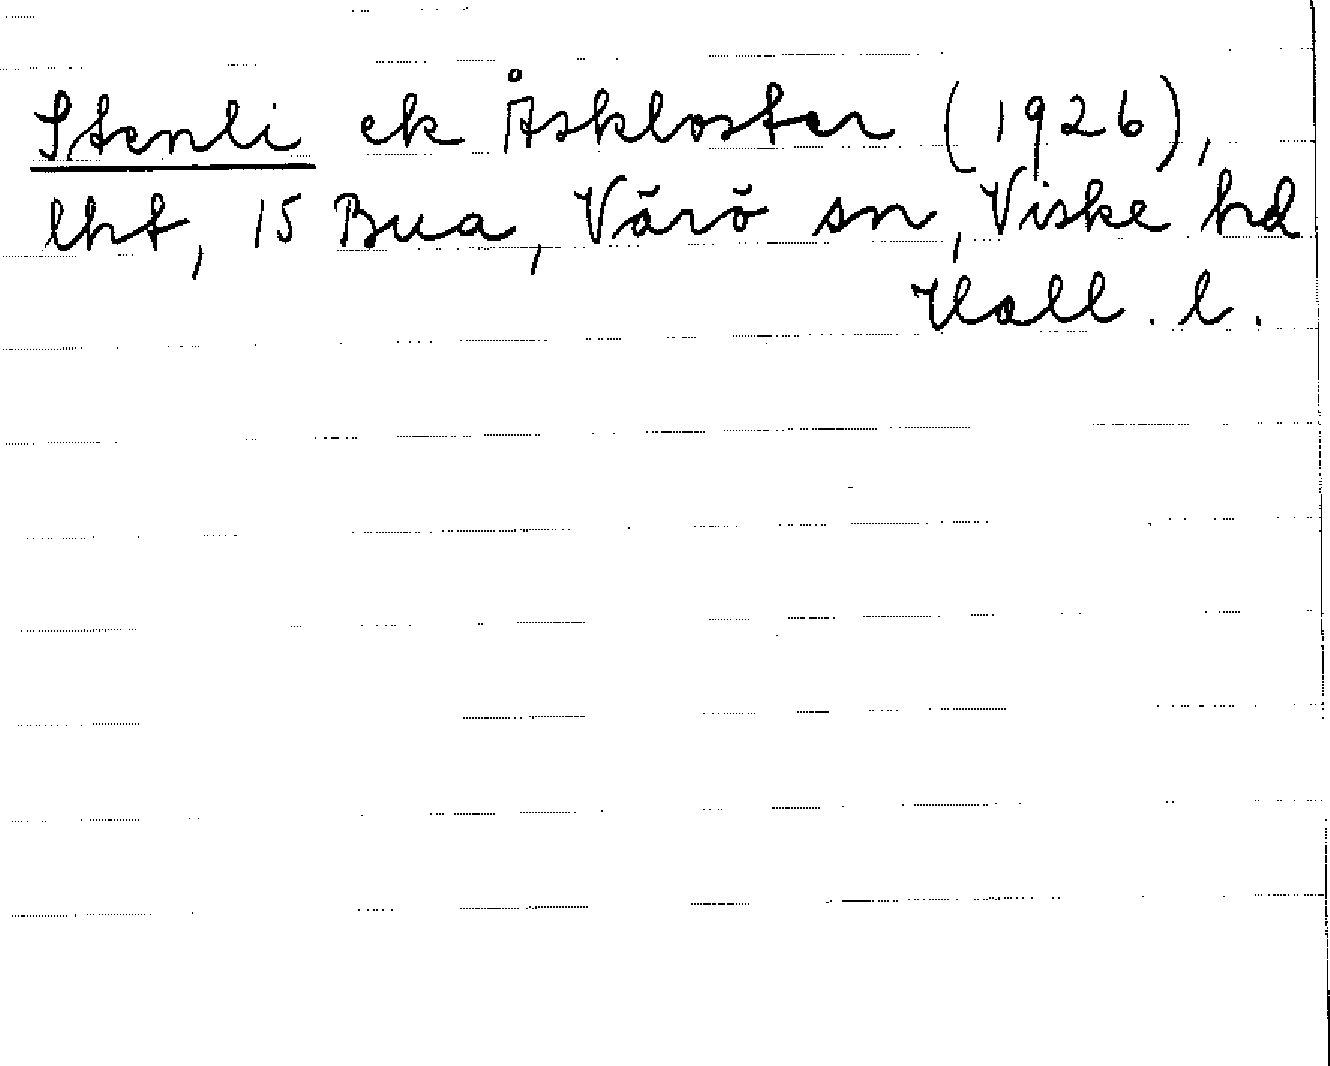 Stenli ek Åskloster (1926),
lht, 15 Bua, Värö sn, Viske hd
Hall. l.